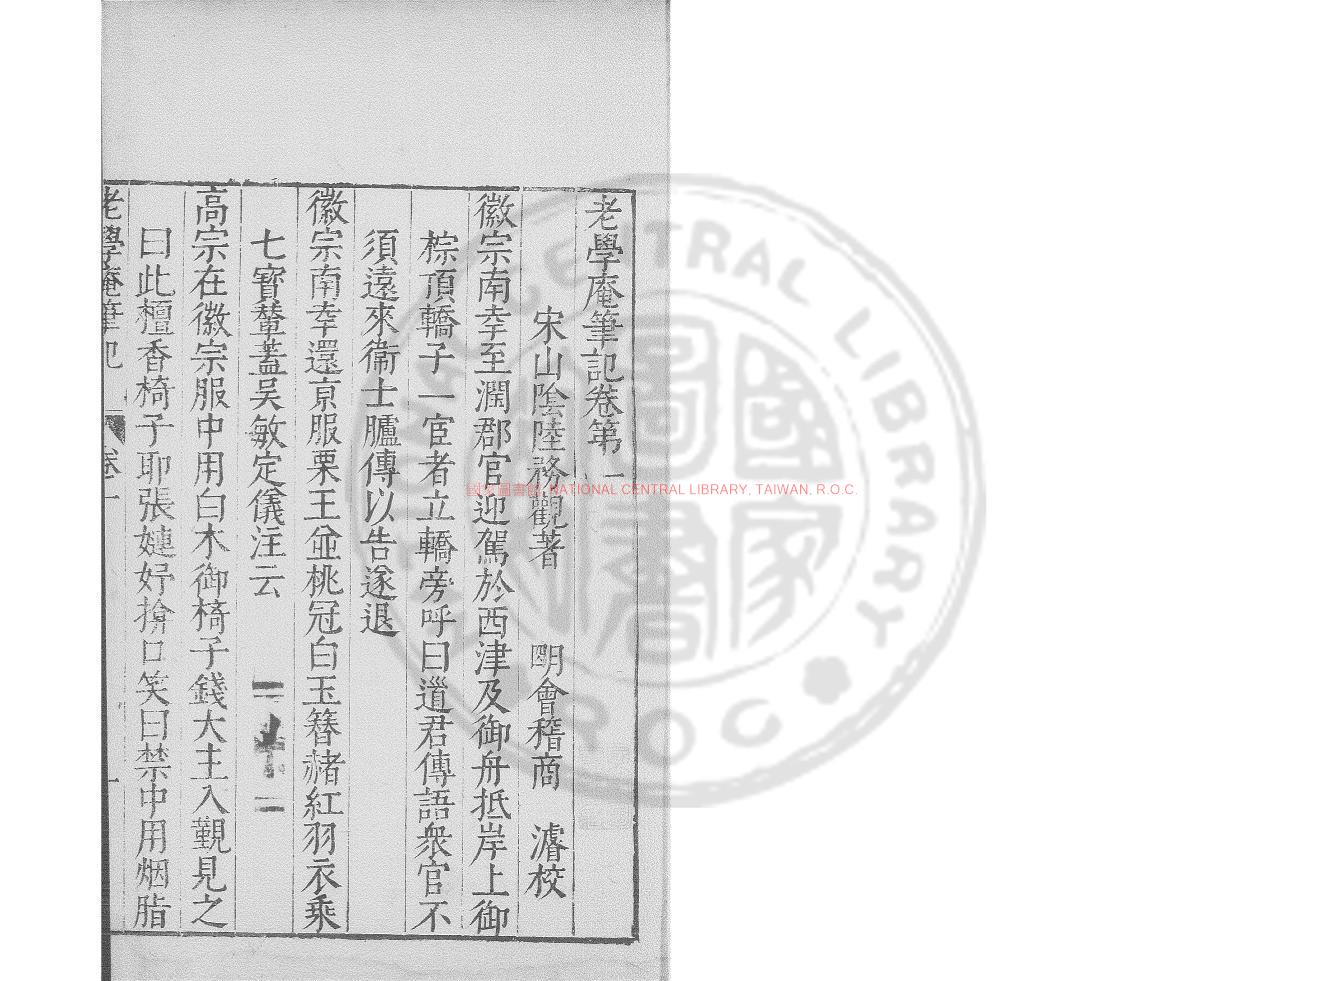 老學庵筆記卷第一
宋山陰陸務觀著 明會稽商 濬校
徽宗南幸至潤郡官迎駕於西津及御舟抵岸上御
棕頂轎子一宦者立轎旁呼曰道君傳語衆官不
須遠來衞士臚傳以告遂退
徽宗南幸還京服栗玉並桃冠白玉簪赭紅羽衣乘
七寶輦蓋吴敏定儀注云
高宗在徽宗服中用白木御椅子錢大主入覲見之
曰此檀香椅子耶張婕妤掩口笑曰禁中用烟脂
老學庵筆記 卷一 一
國家圖書館, NATIONAL CENTRAL LIBRARY, TAIWAN, R.O.C.
CENTRAL LIBRARY
ROC